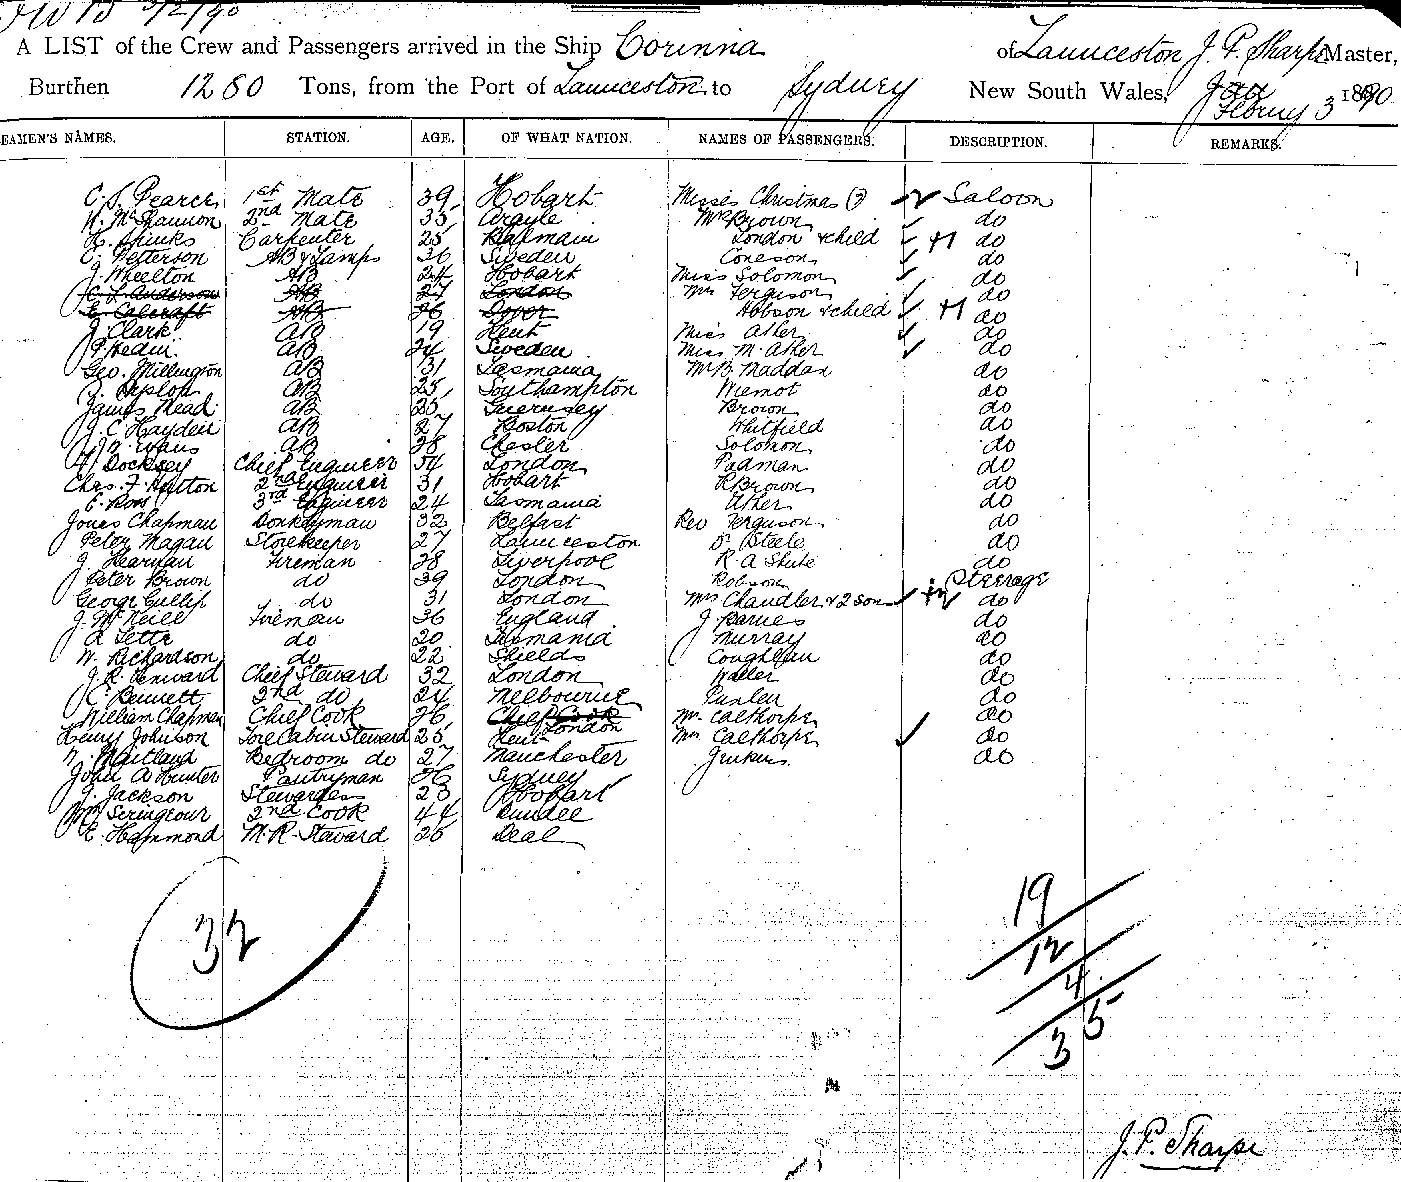 3/2/90
A LIST of the Crew and Passengers arrived in the Ship Corinna of Launceston J. P. Sharpe Master,
Burthen 1280 Tons, from the Port of Launceston to Sydney New South Wales, Jan Febury 3 1890
EAMEN'S NAMES. STATION. AGE. OF WHAT NATION. NAMES OF PASSENGERS. DESCRIPTION. REMARKS.
C. S. Pearce 1st Mate 39 Hobart Misses Christmas (2) Saloon
N. McShannon 2nd Mate 35 Argyle Mrs Brown do
Shinks Carpenter 25 Balmain London & child +1 do
C. Petterson AB & Lamps 36 Sweden Coneson do
J. Wheelton AB 24 Hobart Miss Solomon do
C. L. Anderson AB 27 London Mrs Ferguson do
Calcraft AB 26 Dover Hobson & child +1 do
J. Clark AB 19 Kent Miss Asher do
P. Hedin AB 24 Sweden Miss M. Asher do
Geo. Millington AB 31 Tasmania Mr B. Maddan do
Hyslop AB 25 Southampton Wemot do
James Mead AB 25 Guernsey Brown do
J. C. Hayden AB 27 Boston Whitfield do
AB 28 Chester Solomon do
Docksey Chief Engineer 34 London Padman do
Chas. F. Hutton 2nd Engineer 31 Hobart R Brown do
E. Ross 3rd Engineer 24 Tasmania Asher do
Jonas Chapman Donkeyman 32 Belfast Rev Ferguson do
Peter Magan Storekeeper 27 Launceston Dr Steele do
J. Kearnan Fireman 28 Liverpool R A Shute do
Peter Brown do 39 London Robson Steerage
George Gullip do 31 London Mrs Chandler & 2 son +2 do
J. McNeill Fireman 36 England J. Barnes do
A Lette do 20 Tasmania Murray do
W. Richardson do 22 Shields Coughlan do
J. R. Kenward Chief Steward 32 London Waller do
C. Bennett 2nd do 24 Melbourne do
William Chapman Chief Cook 26 Chief Cook London Mr. Calthorpe do
Henry Johnson Fore Cabin Steward 25 Kent Mrs Calthorpe do
W. Maitland Bedroom do 27 Manchester Jenkins do
John A Hunter Pantryman 26 Sydney
J. Jackson Stewardess 28 Hobart
Wm Scringeour 2nd Cook 44 Dundee
E. Hammond M. R. Steward 26 Deal
32
19
12
4
35
J. P. Sharpe